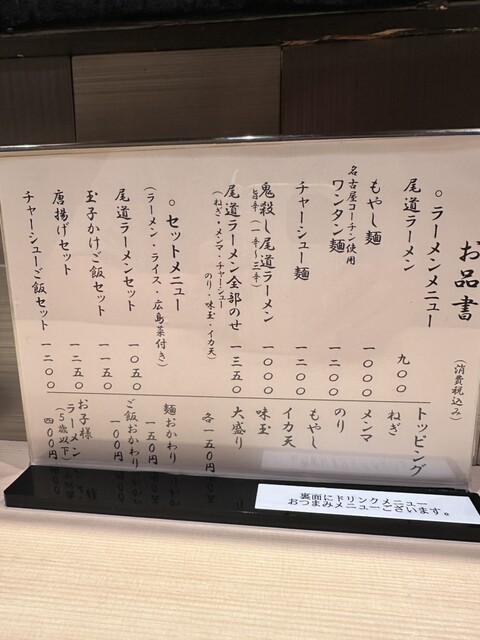 お品書
(消費税込み)
○ラーメンメニュー
尾道ラーメン 九〇〇
もやし麺 一〇〇〇
名古屋コーチン使用
ワンタン麺 一二〇〇
チャーシュー麺 一二〇〇
鬼殺し尾道ラーメン 一〇〇〇
旨辛(一辛〜三辛)
尾道ラーメン全部のせ 一三五〇
(ねぎ・メンマ・チャーシュー
のり・味玉・イカ天)
○セットメニュー
(ラーメン・ライス・広島菜付き)
尾道ラーメンセット 一〇五〇
玉子かけご飯セット 一一五〇
唐揚げセット 一二五〇
チャーシューご飯セット 一二〇〇
トッピング
ねぎ
メンマ
のり
もやし
イカ天
味玉
大盛り
各一五〇円
麺おかわり
一五〇円
ご飯おかわり
一〇〇円
お子様
ラーメン
(5歳以下)
四〇〇円
裏面にドリンクメニュー
おつまみメニューございます。